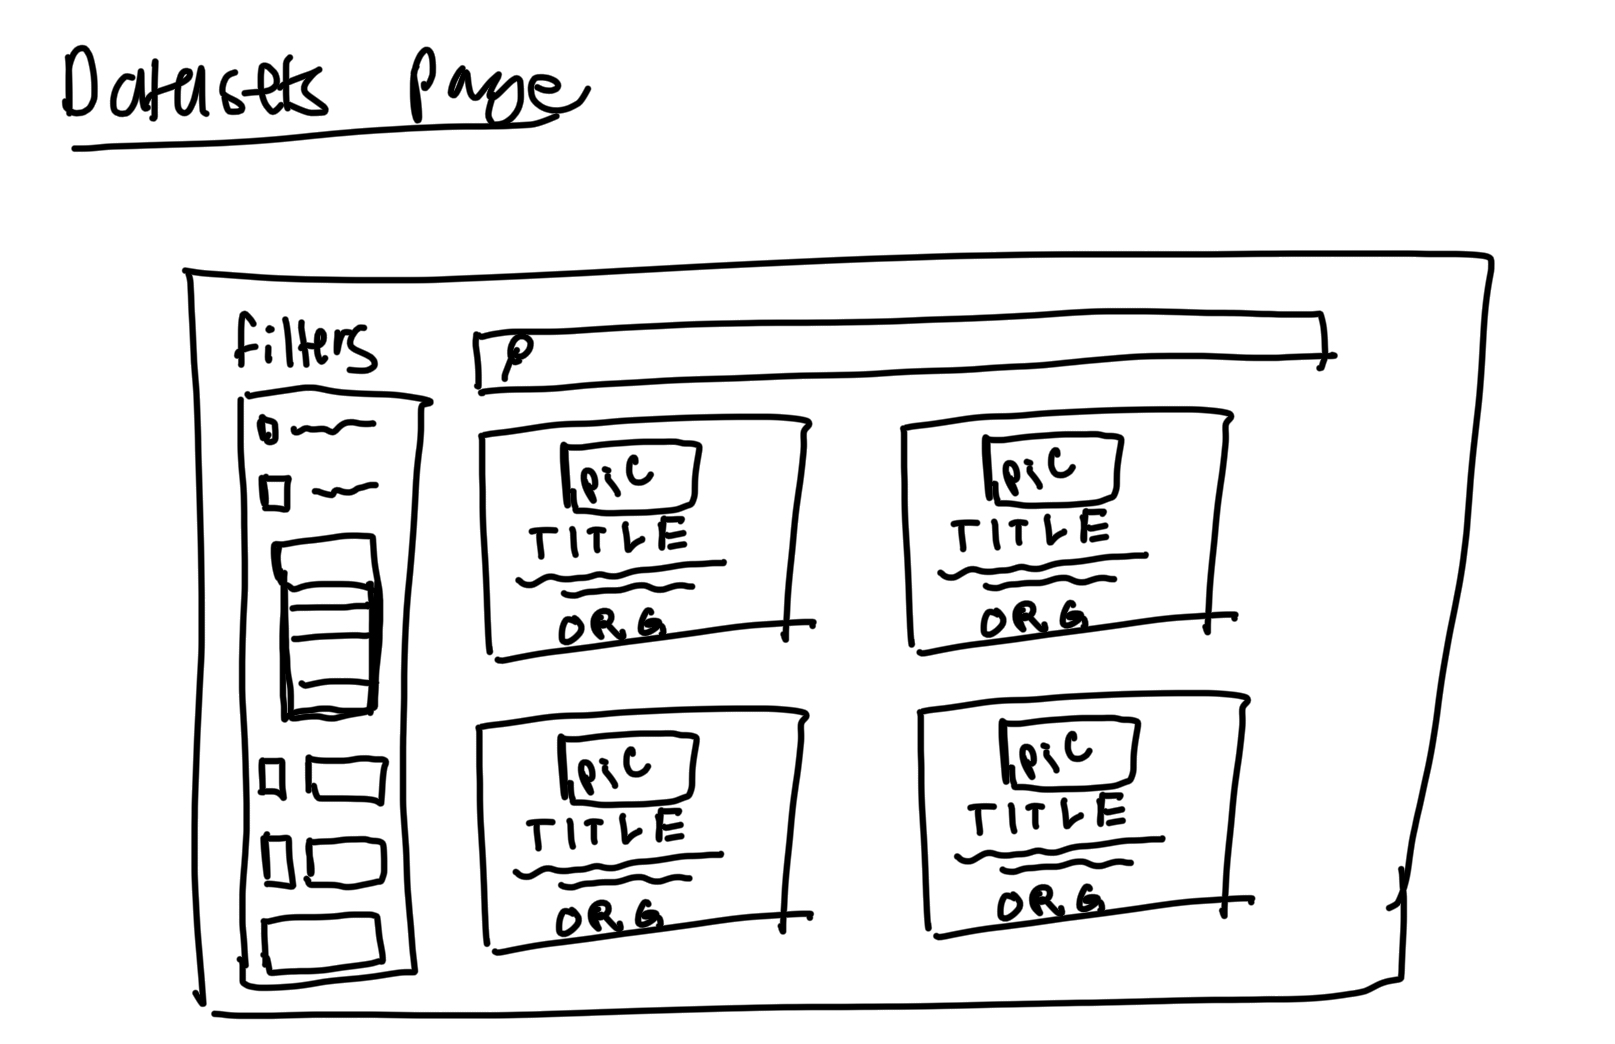 Datasets Page
Filters
PIC
TITLE
ORG
PIC
TITLE
ORG
PIC
TITLE
ORG
PIC
TITLE
ORG